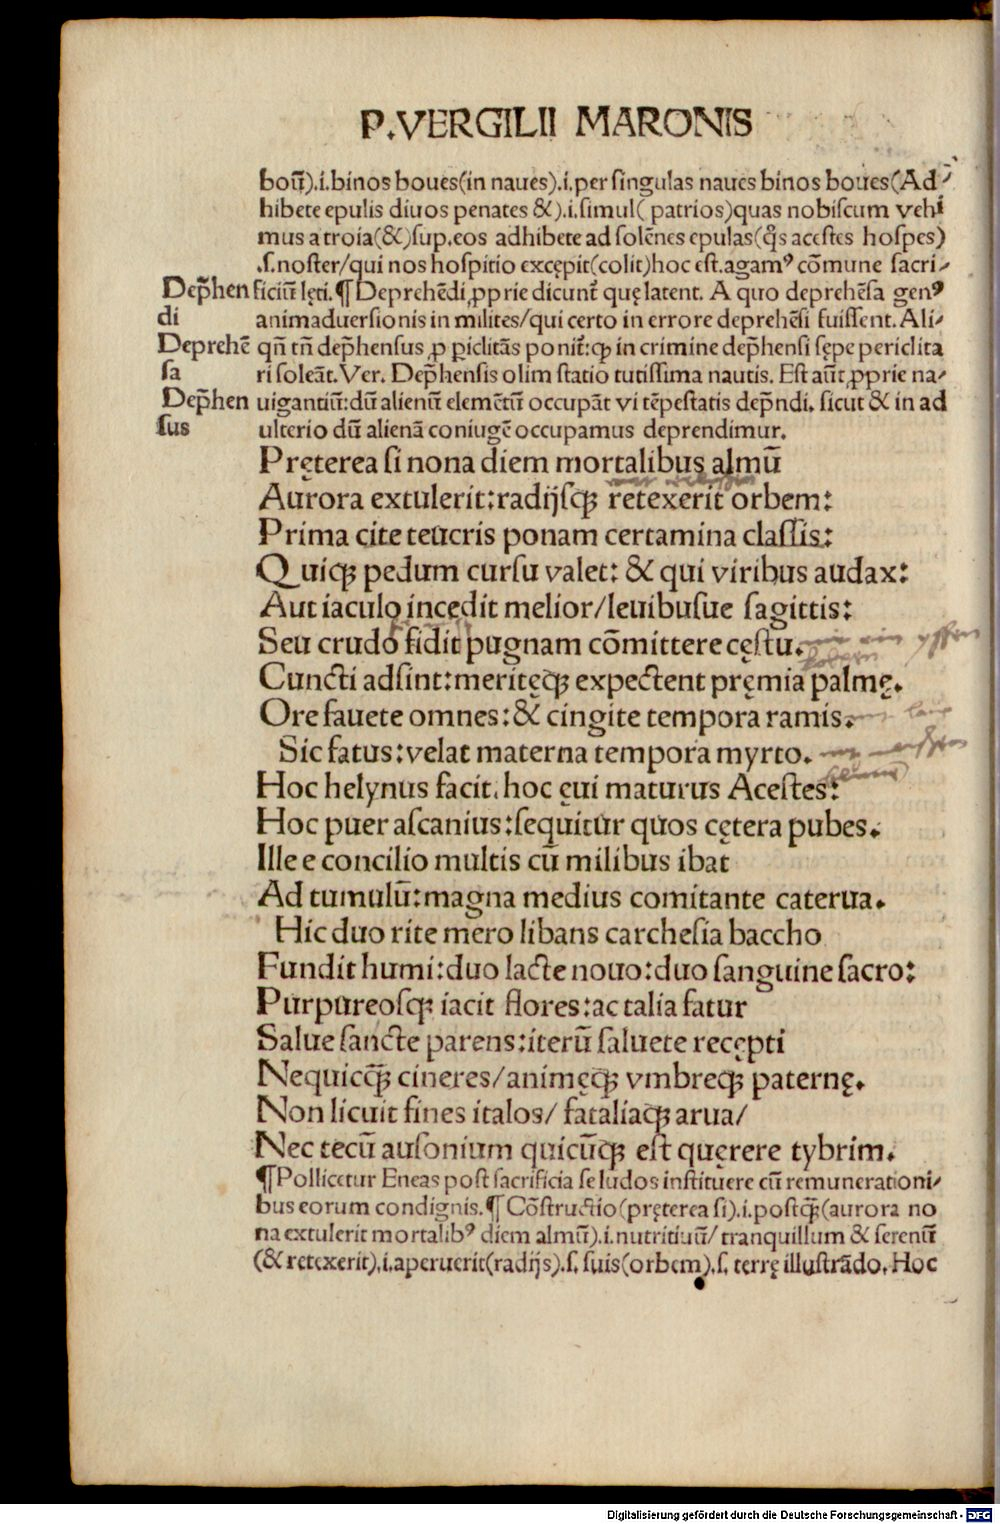 P.VERGILII MARONIS
boũ).i.binos boues(in naues).i.per singulas naues binos boues(Ad⸗
hibete epulis diuos penates &).i.simul( patrios)quas nobiscum vehi
mus a troia(&)sup.eos adhibete ad solēnes epulas(q̃s acestes hospes)
.s.noster/qui nos hospitio excępit(colit)hoc est.agamꝰ cōmune sacri⸗
Dep̃hen ficiũ lęti.¶ Deprehēdi ꝓprie dicunt̃ quę latent. A quo deprehēsa genꝰ
di animaduersionis in milites/qui certo in errore deprehēsi fuissent. Ali⸗
Deprehē qñ tñ dep̃hensus ꝓ ꝑiclitãs ponit̃:ꝙ in crimine dep̃hensi sępe periclita
sa ri soleãt. Ver. Dep̃hensis olim statio tutissima nautis. Est aũt ꝓprie na⸗
Dep̃hen uigantiũ:dũ alienũ elemẽtũ occupãt vi tẽpestatis dep̃ndi. sicut & in ad
sus ulterio dũ alienã coniugẽ occupamus deprendimur.
Pręterea si nona diem mortalibus almũ
Aurora extulerit:radijsq̃ retexerit orbem:
Prima cite teucris ponam certamina classis:
Quiq̃ pedum cursu valet: & qui viribus audax:
Aut iaculo incędit melior/leuibusue sagittis:
Seu crudo fidit pugnam cōmittere cęstu.
Cuncti adsint:meritęq̃ expectent pręmia palmę.
Ore fauete omnes:& cingite tempora ramis.
Sic fatus:velat materna tempora myrto.
Hoc helynus facit.hoc ęui maturus Acestes:
Hoc puer ascanius:sequitur quos cętera pubes.
Ille e concilio multis cũ milibus ibat
Ad tumulũ:magna medius comitante caterua.
Hic duo rite mero libans carchesia baccho
Fundit humi:duo lacte nouo:duo sanguine sacro:
Purpureosq̃ iacit flores:ac talia fatur
Salue sancte parens:iterũ saluete recępti
Nequicq̃̃ cineres/animęq̃ vmbreq̃ paternę.
Non licuit fines italos/ fataliaq̃ arua/
Nec tecũ ausonium quicũq̃ est quęrere tybrim.
¶Pollicetur Eneas post sacrificia se ludos instituere cũ remunerationi⸗
bus eorum condignis.¶ Cōstructio(pręterea si).i.postq̃̃(aurora no
na extulerit mortalibꝰ diem almũ).i.nutritiuũ/ tranquillum & serenũ
(& retexerit).i.aperuerit(radijs).s. suis(orbem).s. terrę illustrãdo. Hoc
Digitalisierung gefördert durch die Deutsche Forschungsgemeinschaft - DFG